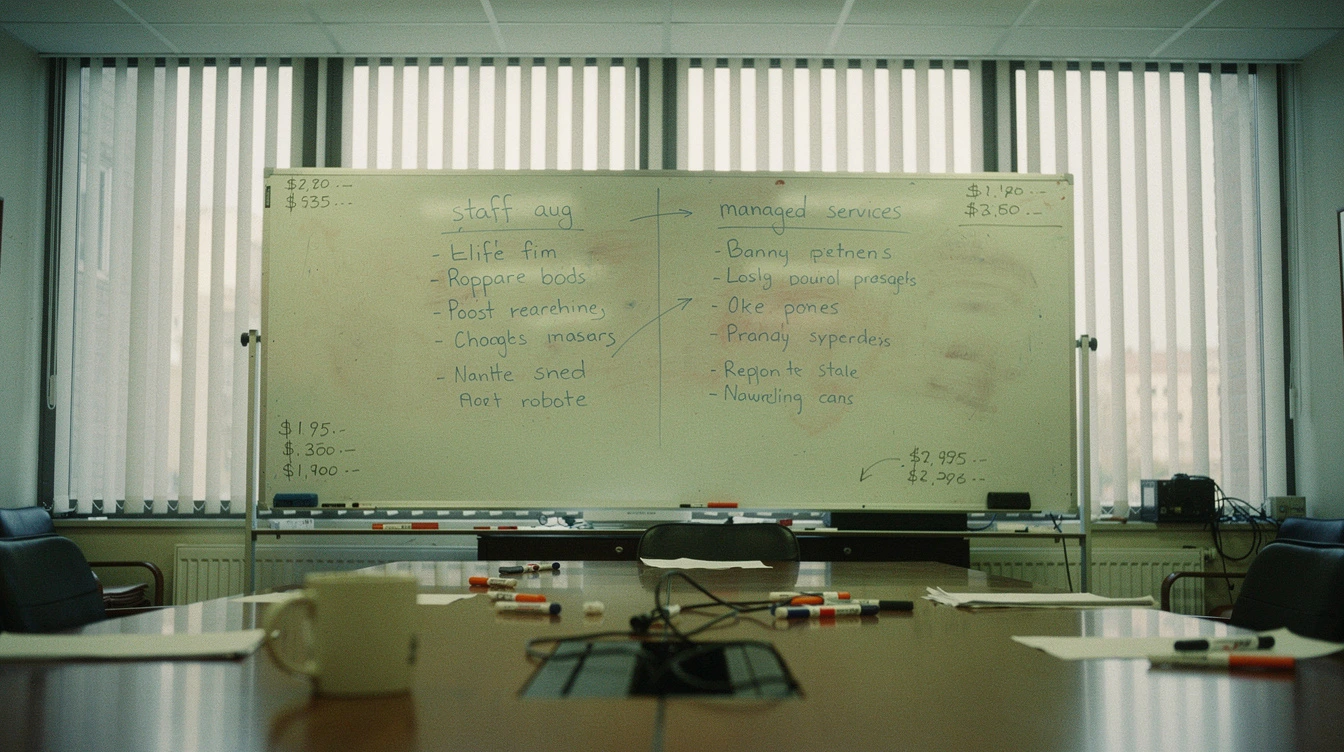 $2,20.--
$935.--
$1.190.--
$3,60.--
staff aug
managed services
- Elife fim
- Roppare bods
- Poost rearehine,
- Choogts masars
- Nantte sned
Aoet robote
- Banny petnens
- Loslg pourol prosgets
- Oke pones
- Prandy syperdess
- Replon te stale
- Nawreling cans
$195.-
$.300.--
$1,900--
$2,995.--
$2,296.--